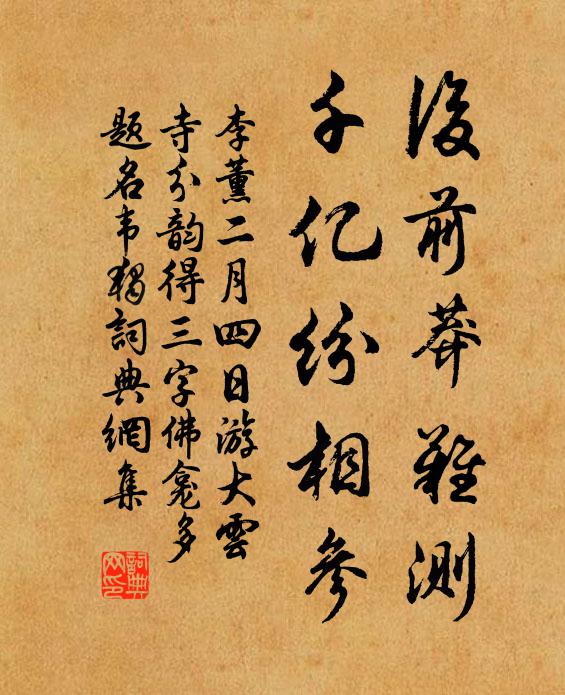 後前莽難測
千亿紛相參
李薰二月四日游大雲
寺分韵得三字佛龛多
题名韦獨詞典網集
詞典
网印